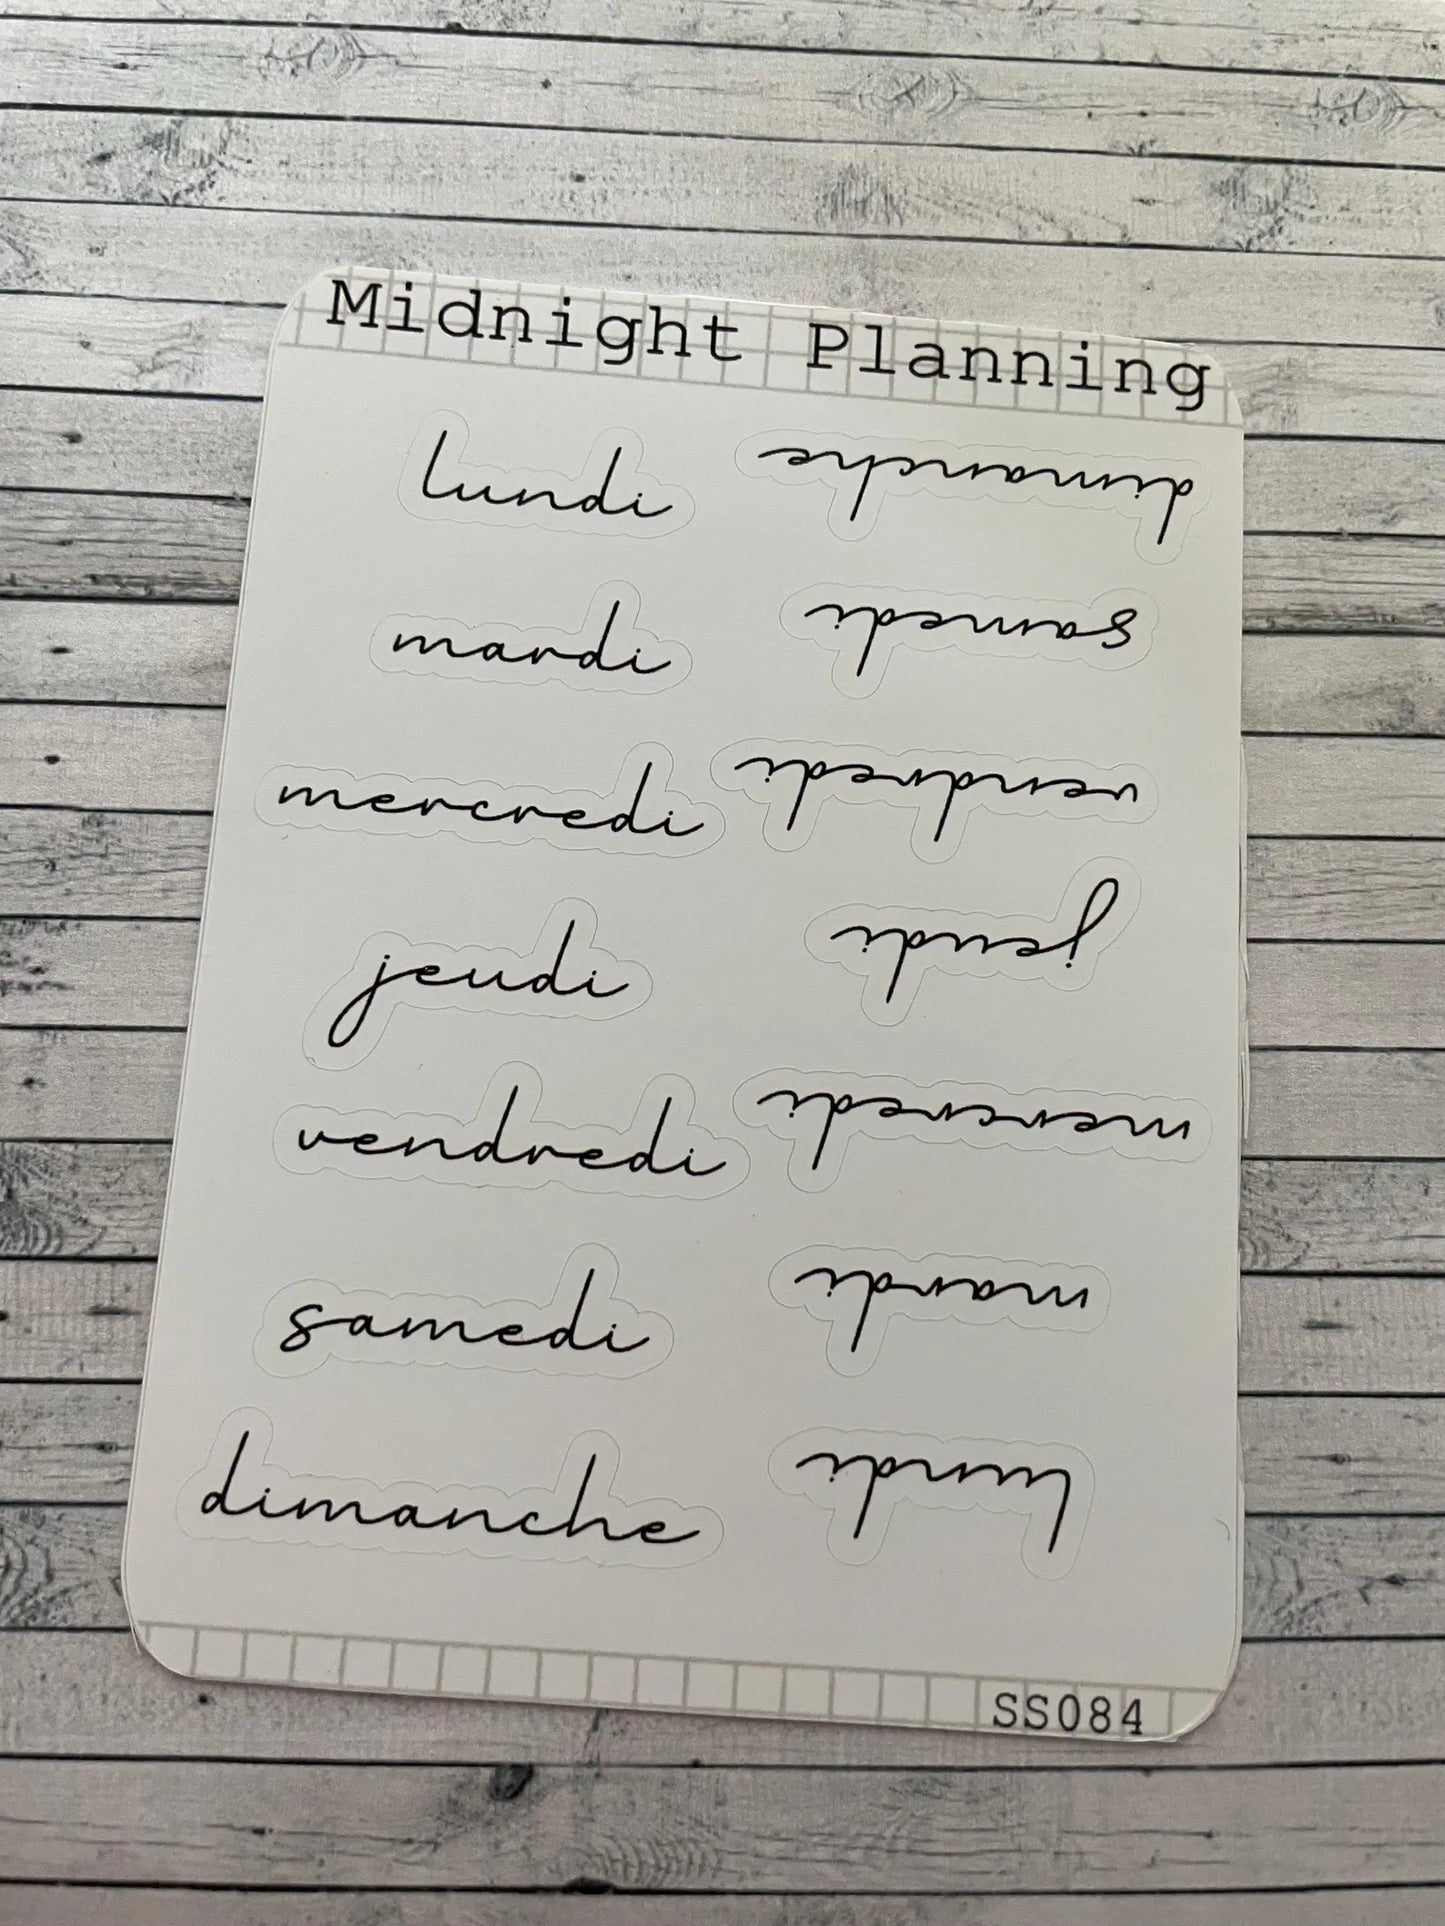 Midnight Planning
lundi
mardi
mercredi
jeudi
vendredi
samedi
dimanche
dimanche
samedi
vendredi
jeudi
mercredi
mardi
lundi
SS084